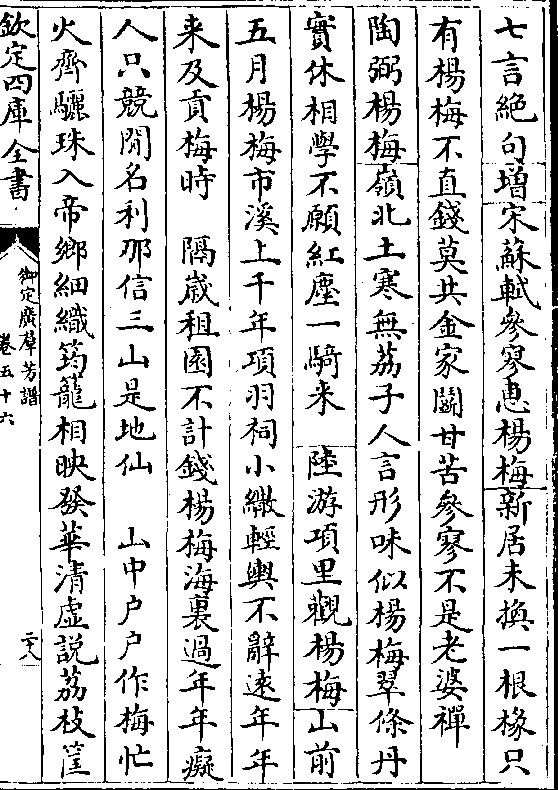 七言絶句増宋蘇軾參寥惠楊梅新居未換一根椽只
有楊梅不直錢莫共金家鬭甘苦參寥不是老婆禪
陶弼楊梅嶺北土寒無荔子人言形味似楊梅翠條丹
實休相學不願紅塵一騎来　陸游項里觀楊梅山前
五月楊梅市溪上千年項羽祠小繖輕輿不辭遠年年
来及貢梅時　隔歳租園不計錢楊梅海裏過年年癡
人只競閒名利那信三山是地仙　山中户户作梅忙
火齊驪珠入帝鄉細織筠籠相映發華清虛説荔枝筐
欽定四庫全書
御定廣羣芳譜
卷五十六
二八